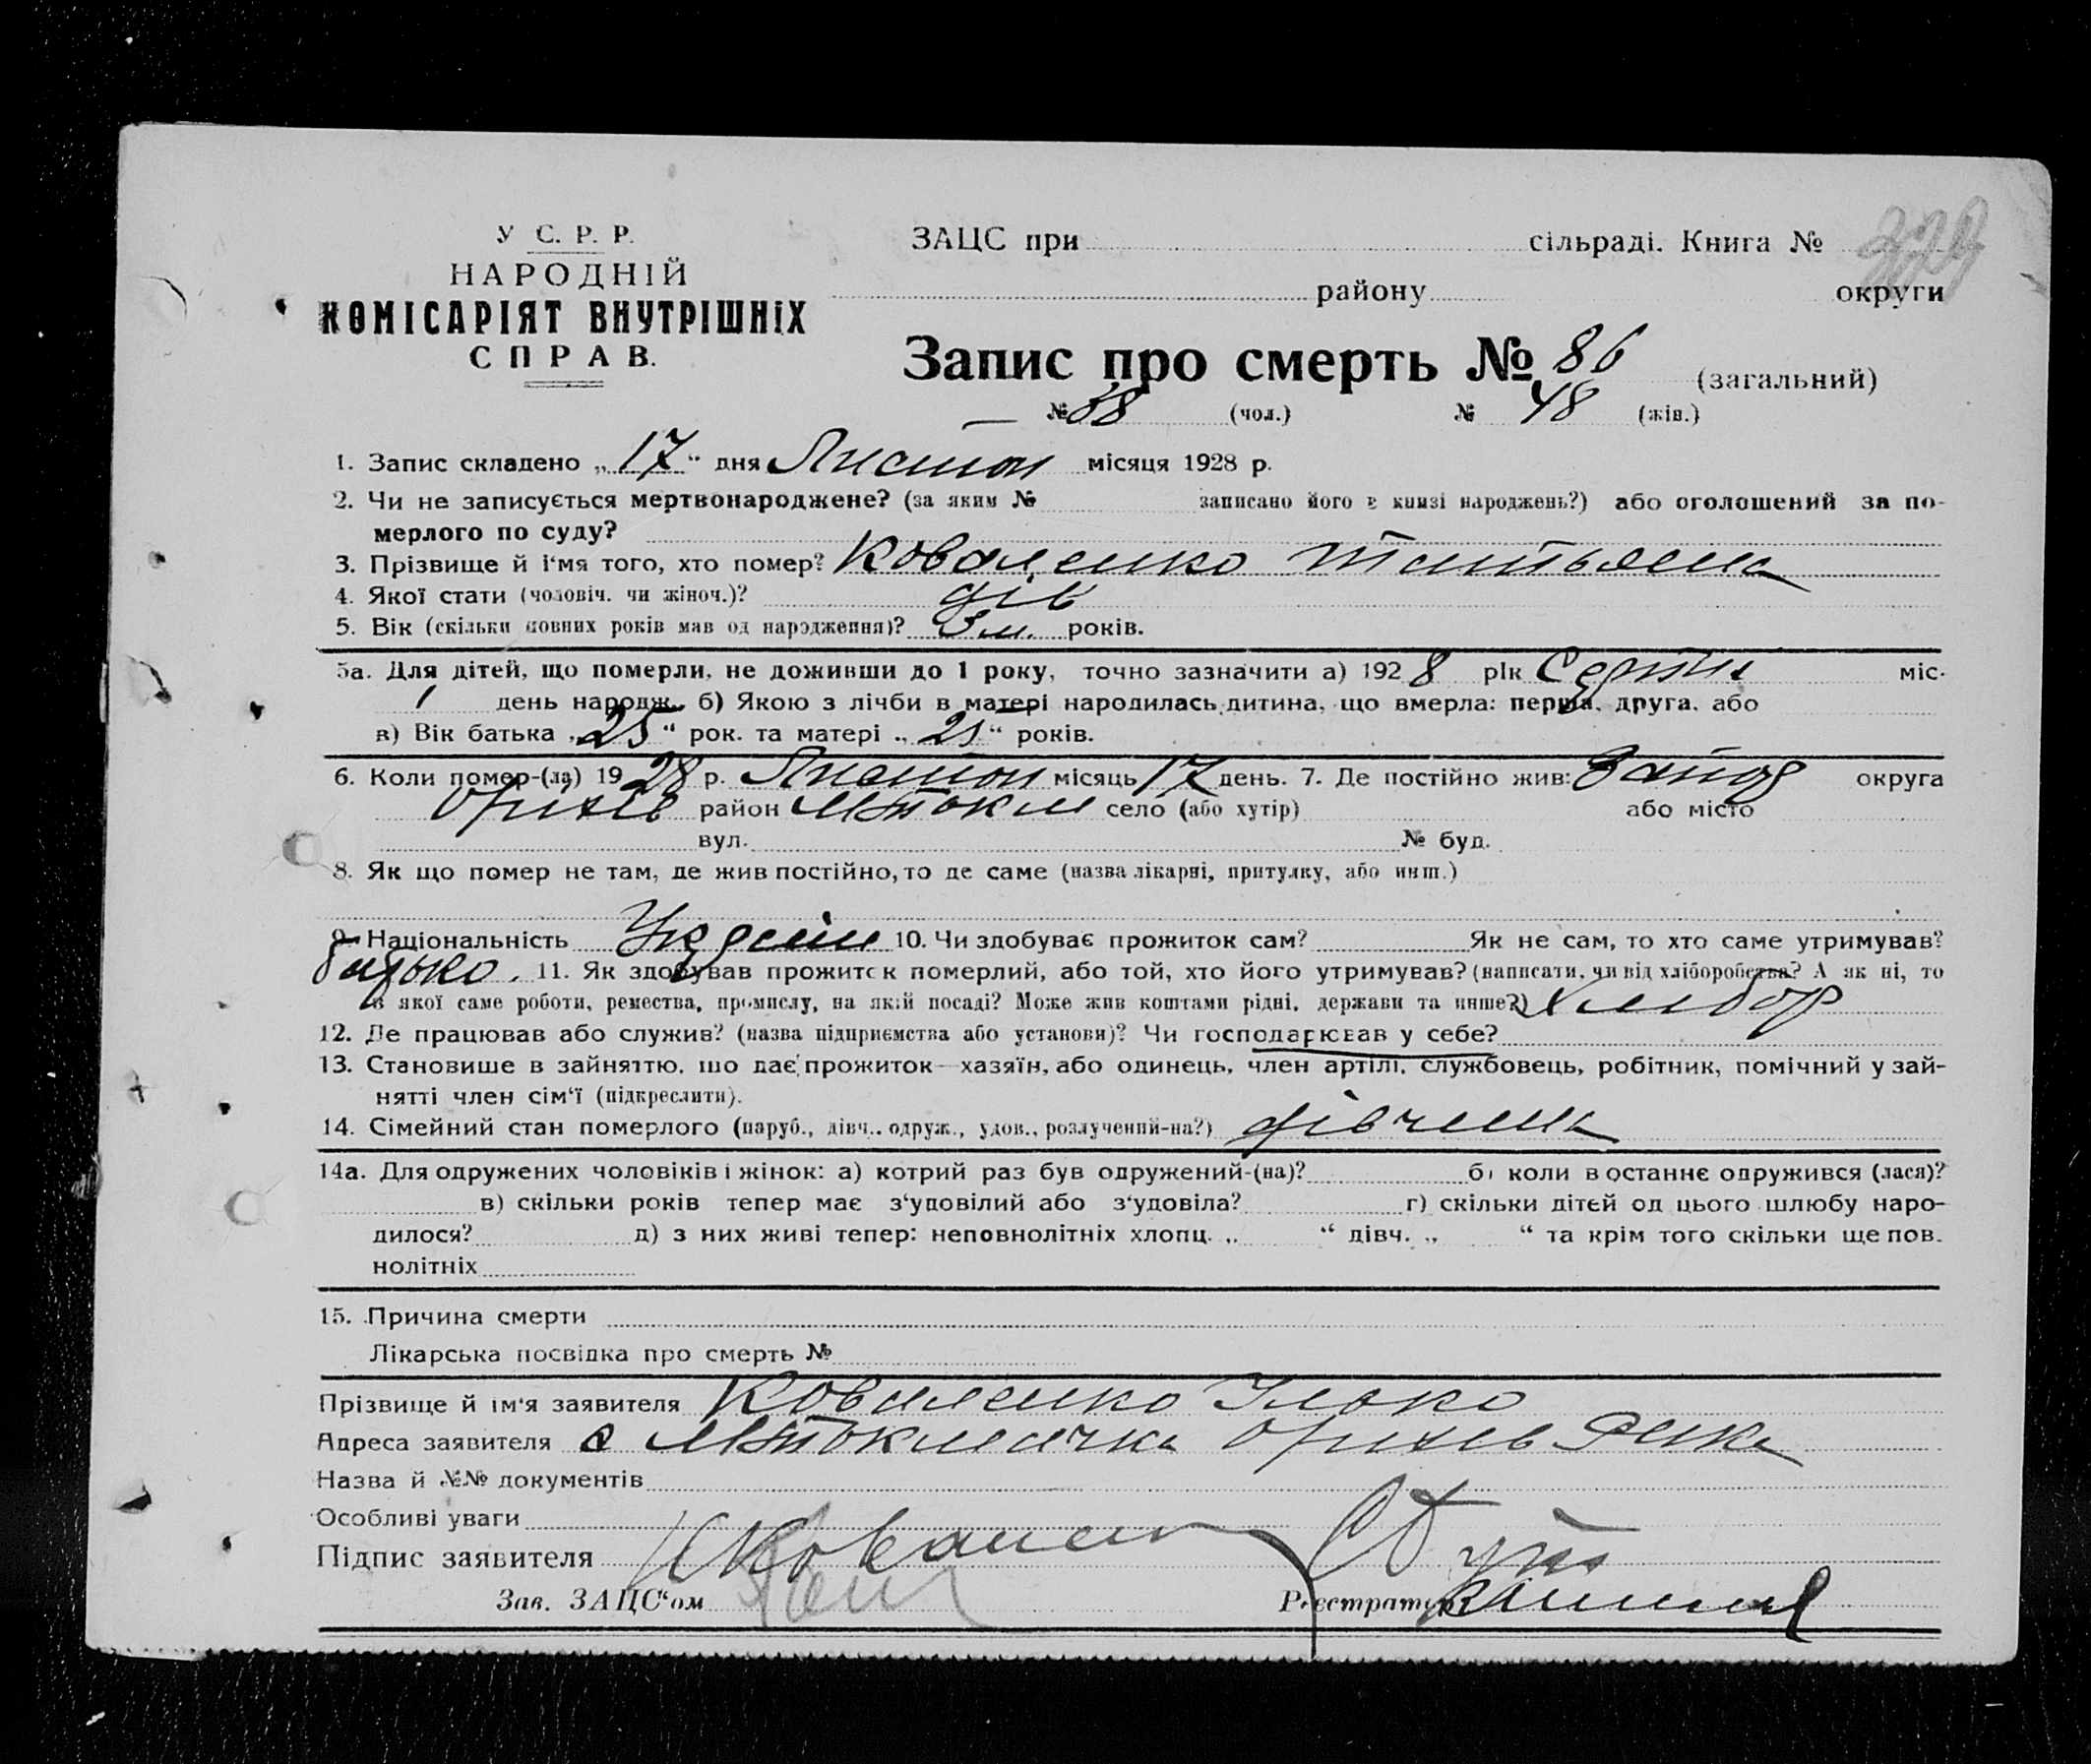 У С. Р. Р.
НАРОДНІЙ
КОМІСАРІЯТ ВНУТРІШНІХ
СПРАВ.
ЗАЦС при сільраді. Книга №
району округи
Запис про смерть № 86 (загальний)
№ 38 (чол.) № 48 (жін.)
1. Запис складено „17“ дня Листоп місяця 1928 р.
2. Чи не записується мертвонароджене? (за яким № записано його в книзі народжень?) або оголошений за по-
мерлого по суду?
3. Прізвище й і‘мя того, хто помер? Коваленко Татьяна
4. Якої стати (чоловіч. чи жіноч.)? дів
5. Вік (скільки повних років мав од народження)? 3 м. років.
5а. Для дітей, що померли, не доживши до 1 року, точно зазначити а) 1928 рік Серпня міс.
1 день народж. б) Якою з лічби в матері народилась дитина, що вмерла: перша, друга, або
в) Вік батька „25“ рок. та матері „25“ років.
6. Коли помер-(ла) 1928 р. Листоп місяць 17 день. 7. Де постійно жив: Запор округа
Оріхів район село (або хутір) або місто
вул. № буд.
8. Як що помер не там, де жив постійно, то де саме (назва лікарні, притулку, або инш.)
9. Національність 10. Чи здобуває прожиток сам? Як не сам, то хто саме утримував?
батько. 11. Як здобував прожиток померлий, або той, хто його утримував? (написати, чи від хліборобства? А як ні, то
з якої саме роботи, ремества, промислу, на якій посаді? Може жив коштами рідні, держави та инше?) хлібор
12. Де працював або служив? (назва підприємства або установи)? Чи господарював у себе?
13. Становище в зайняттю, що дає прожиток—хазяїн, або одинець, член артілі, службовець, робітник, помічний у зай-
нятті член сім‘ї (підкреслити).
14. Сімейний стан померлого (паруб., дівч., одруж., удов., розлучений-на?) дівчина
14а. Для одружених чоловіків і жінок: а) котрий раз був одружений-(на)? б) коли востаннє одружився (лася)?
в) скільки років тепер має з‘удовілий або з‘удовіла? г) скільки дітей од цього шлюбу наро-
дилося? д) з них живі тепер: неповнолітніх хлопц. „ “ дівч. „ “ та крім того скільки ще пов.
нолітніх
15. Причина смерти
Лікарська посвідка про смерть №
Прізвище й ім‘я заявителя Коваленко
Адреса заявителя с Оріхів
Назва й №№ документів
Особливі уваги
Підпис заявителя
Зав. ЗАЦС‘ом Реєстратур